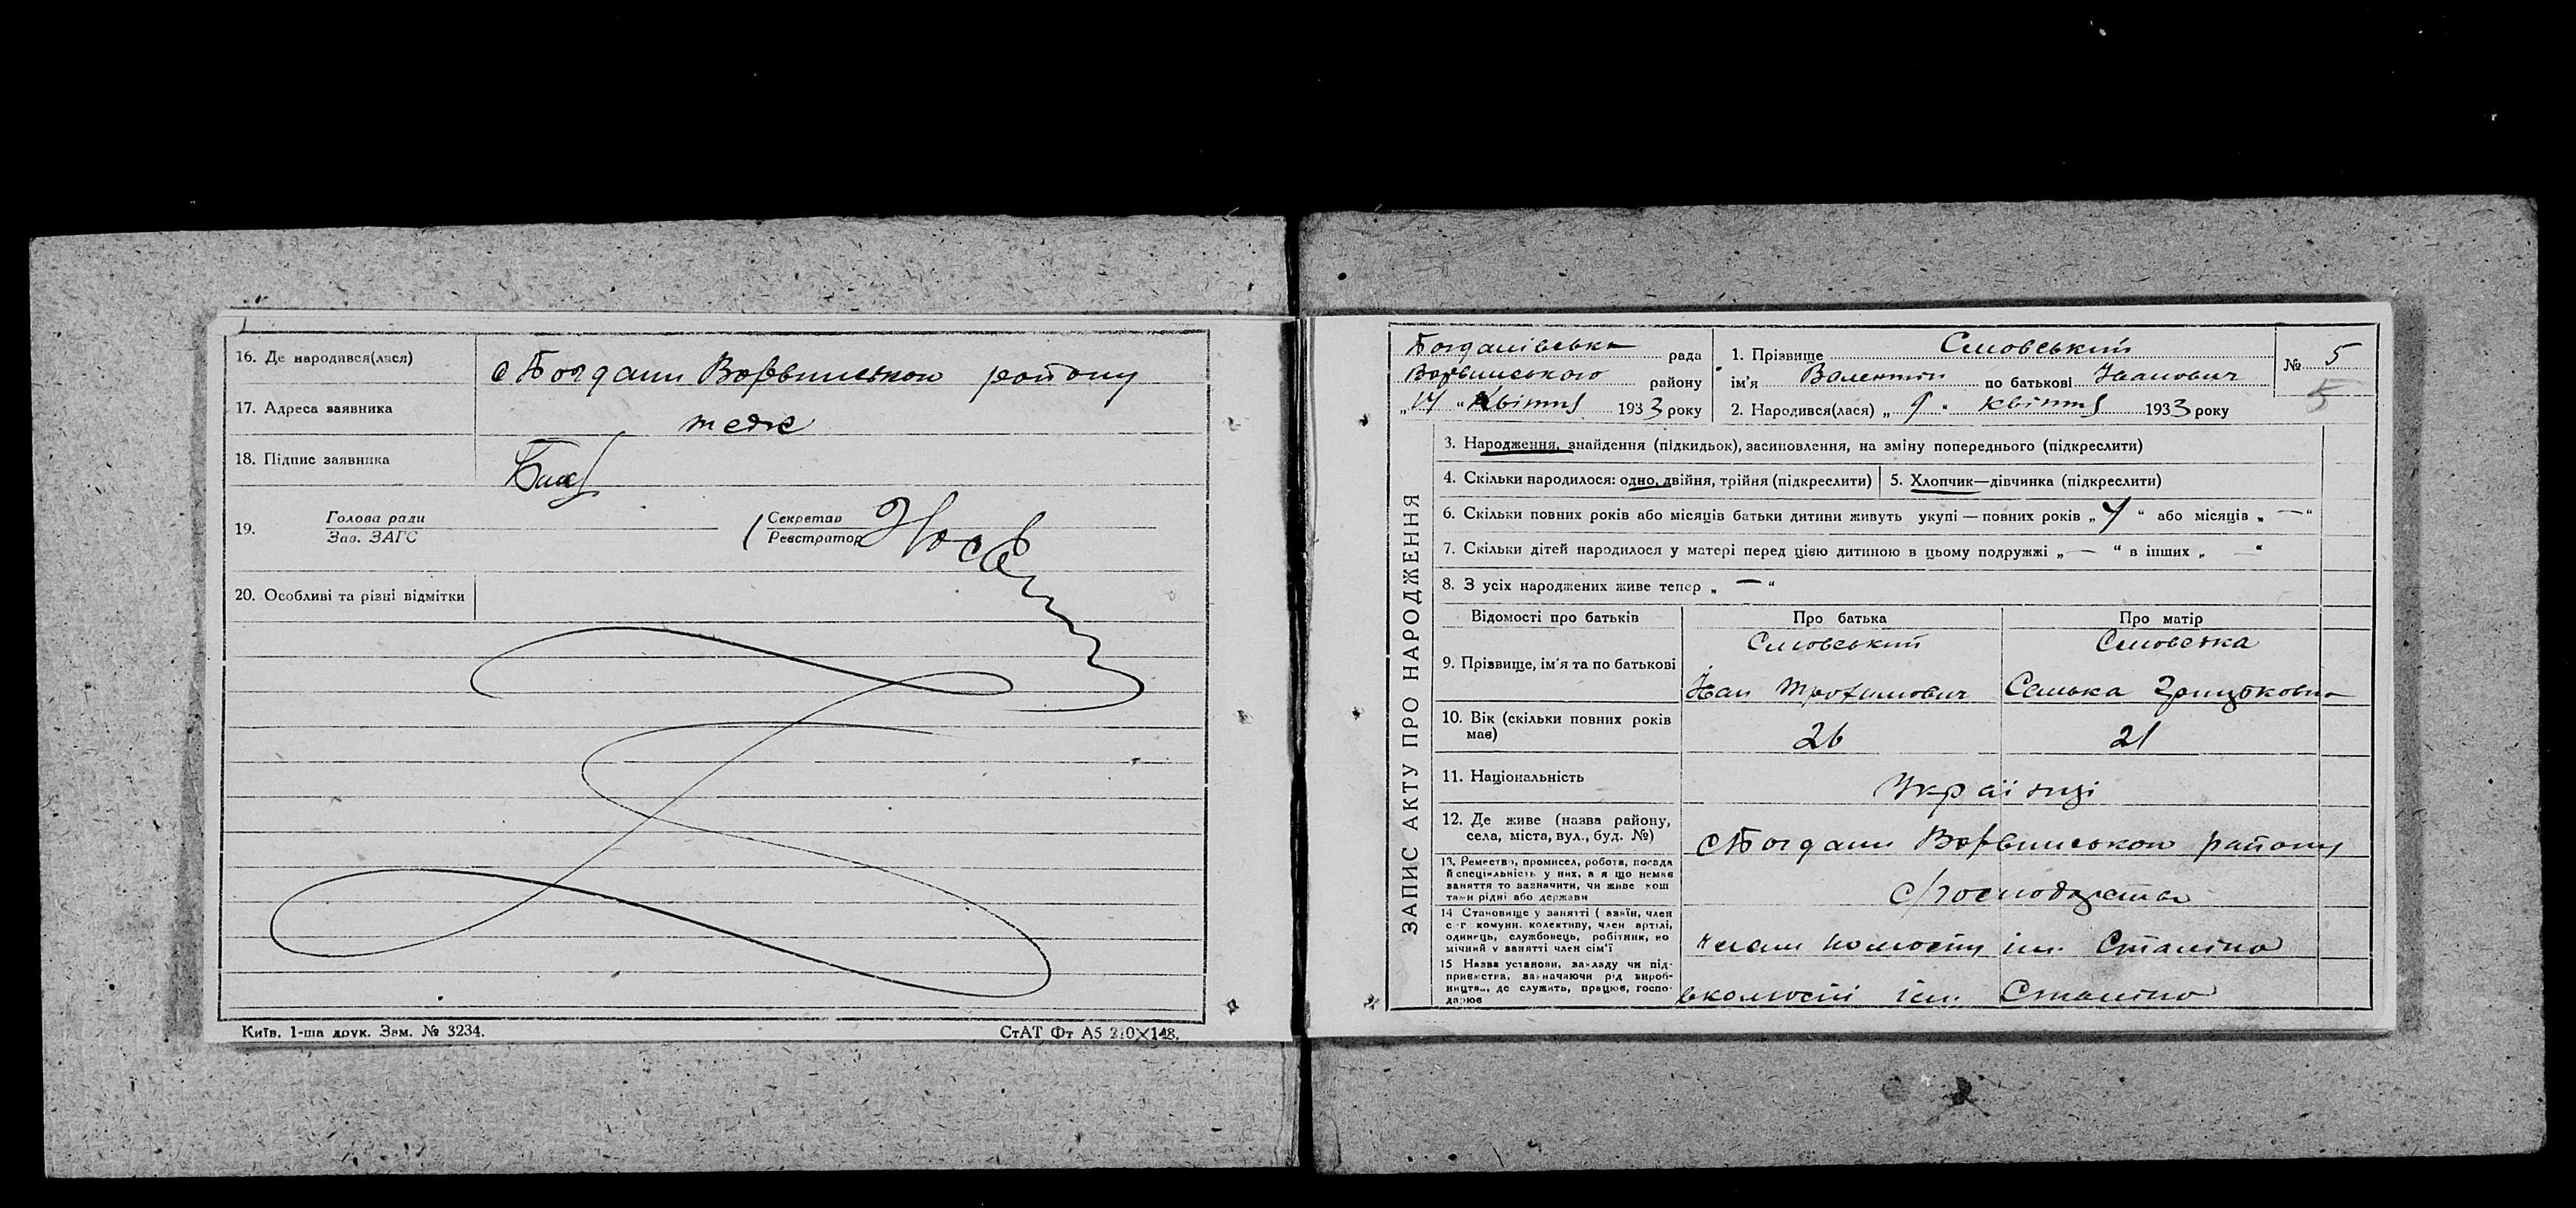 16. Де народився(лася)
с Богдани Варвинськои району
17. Адреса заявника
теж
18. Підпис заявника
19. Голова ради
Зав. ЗАГС
Секретав
Реєстратор
20. Особливі та різні відмітки
Київ, 1-ша друк. Зам. № 3234.
СтАТ Фт А5 210×148.
ЗАПИС АКТУ ПРО НАРОДЖЕННЯ
Богданівська рада
Варвинського району
„ 14 " Квітня 1933 року
1. Прізвище
ім'я Валентин по батькові Іванович
2. Народився(лася) „ 9 " квітня 1933 року
№ 5
5
3. Народження, знайдення (підкидьок), засиновлення, на зміну попереднього (підкреслити)
4. Скільки народилося: одно, двійня, трійня (підкреслити)
5. Хлопчик—дівчинка (підкреслити)
6. Скільки повних років або місяців батьки дитини живуть укупі — повних років „ " або місяців „ — "
7. Скільки дітей народилося у матері перед цією дитиною в цьому подружжі „ — " в інших „ — "
8. З усіх народжених живе тепер „ — "
Відомості про батьків
Про батька
Про матір
9. Прізвище, ім'я та по батькові
Іван Трохимович
10. Вік (скільки повних років має)
26
21
11. Національність
Українці
12. Де живе (назва району,
села, міста, вул., буд. №)
с Богдани Варвинськои району
13. Ремество, промисел, робота, посада
й спеціяльність у них, а я що немає
заняття то зазначити, чи живе кош
тами рідні або держави
с/господарства
14 Становище у занятті ( азяїн, член
с-г комуни, колективу, член артілі,
одинець, службовець, робітник, по
мічний у занятті член сім'ї
член колгоспу ім. Сталіна
15 Назва установи, закладу чи під-
приємства, зазначаючи рід вироб-
ництва, де служить, працює, госпо-
дарює
в колгоспі ім. Сталіна